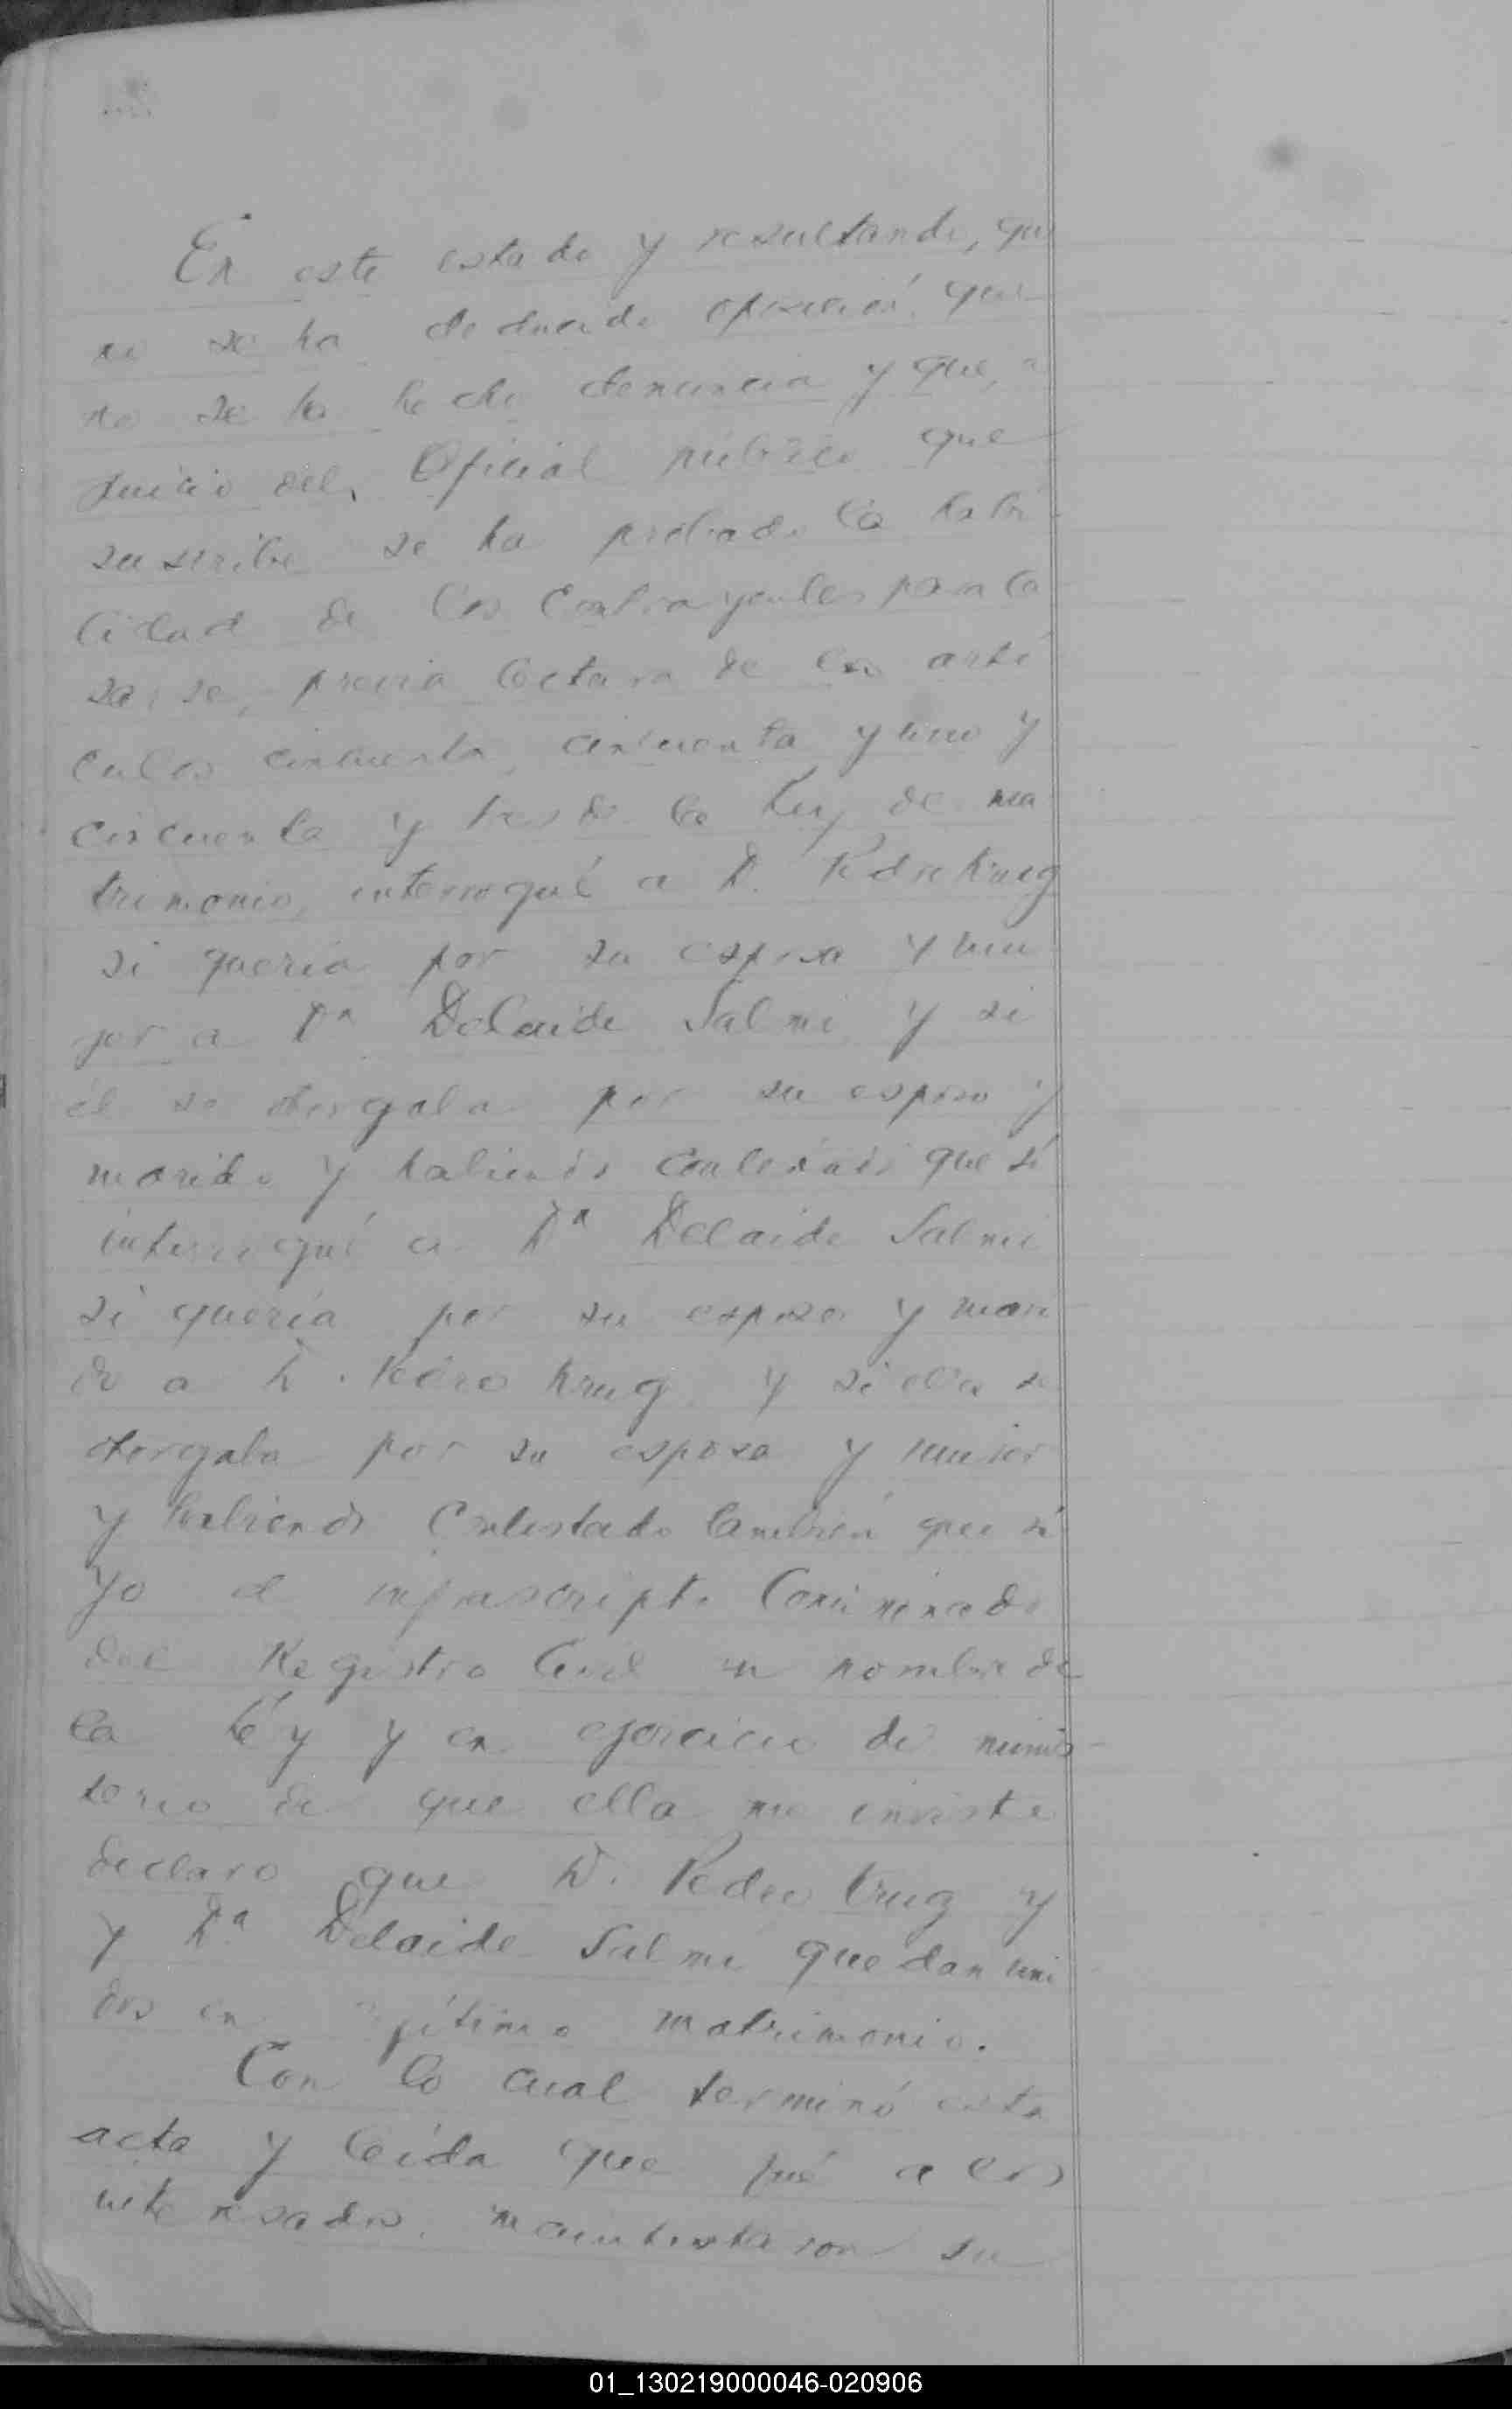 En este estado y resultando, que
no se ha deducido oposición, que
no se ha hecho denuncia y que, a
juicio del Oficial público que
suscribe se ha probado la habi
lidad de los contrayentes para ca
sarse, previa lectura de los artí
culos cincuenta, cincuenta y uno y
cincuenta y tres de la Ley de ma
trimonio, interrogué a D. Pedro Krug
si quería por su esposa y mu
jer a Dª Delaide Salmi y si
él se otorgaba por su esposo y
marido y habiendo contestado que sí
interrogué a Dª Delaide Salmi
si quería por su esposo y mari
do a D. Pedro Krug y si ella se
otorgaba por su esposa y mujer
y habiendo contestado también que sí
yo el infrascripto Comisionado
del Registro Civil en nombre de
la Léy y en ejercicio de minis
terio de que ella me enviste
declaro que D. Pedro Krug y
y Dª Delaide Salmi quedan uni
dos en legítimo matrimonio.
Con lo cual terminó esta
acta y leída que fué a los
interesados, manifestaron su
01_130219000046-020906